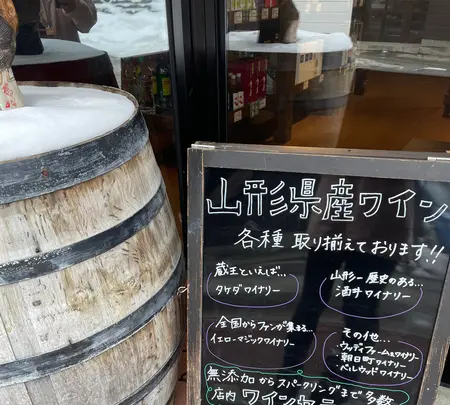 山形県産ワイン
各種 取り揃えております!!
蔵王といえば…
タケダワイナリー
山形一歴史のある…
酒井ワイナリー
全国からファンが集まる…
イエローマジックワイナリー
その他…
・ウッディファーム&ワイナリー
・朝日町ワイナリー
・ベルウッドワイナリー
無添加からスパークリングまで多数
店内 ワインセラー